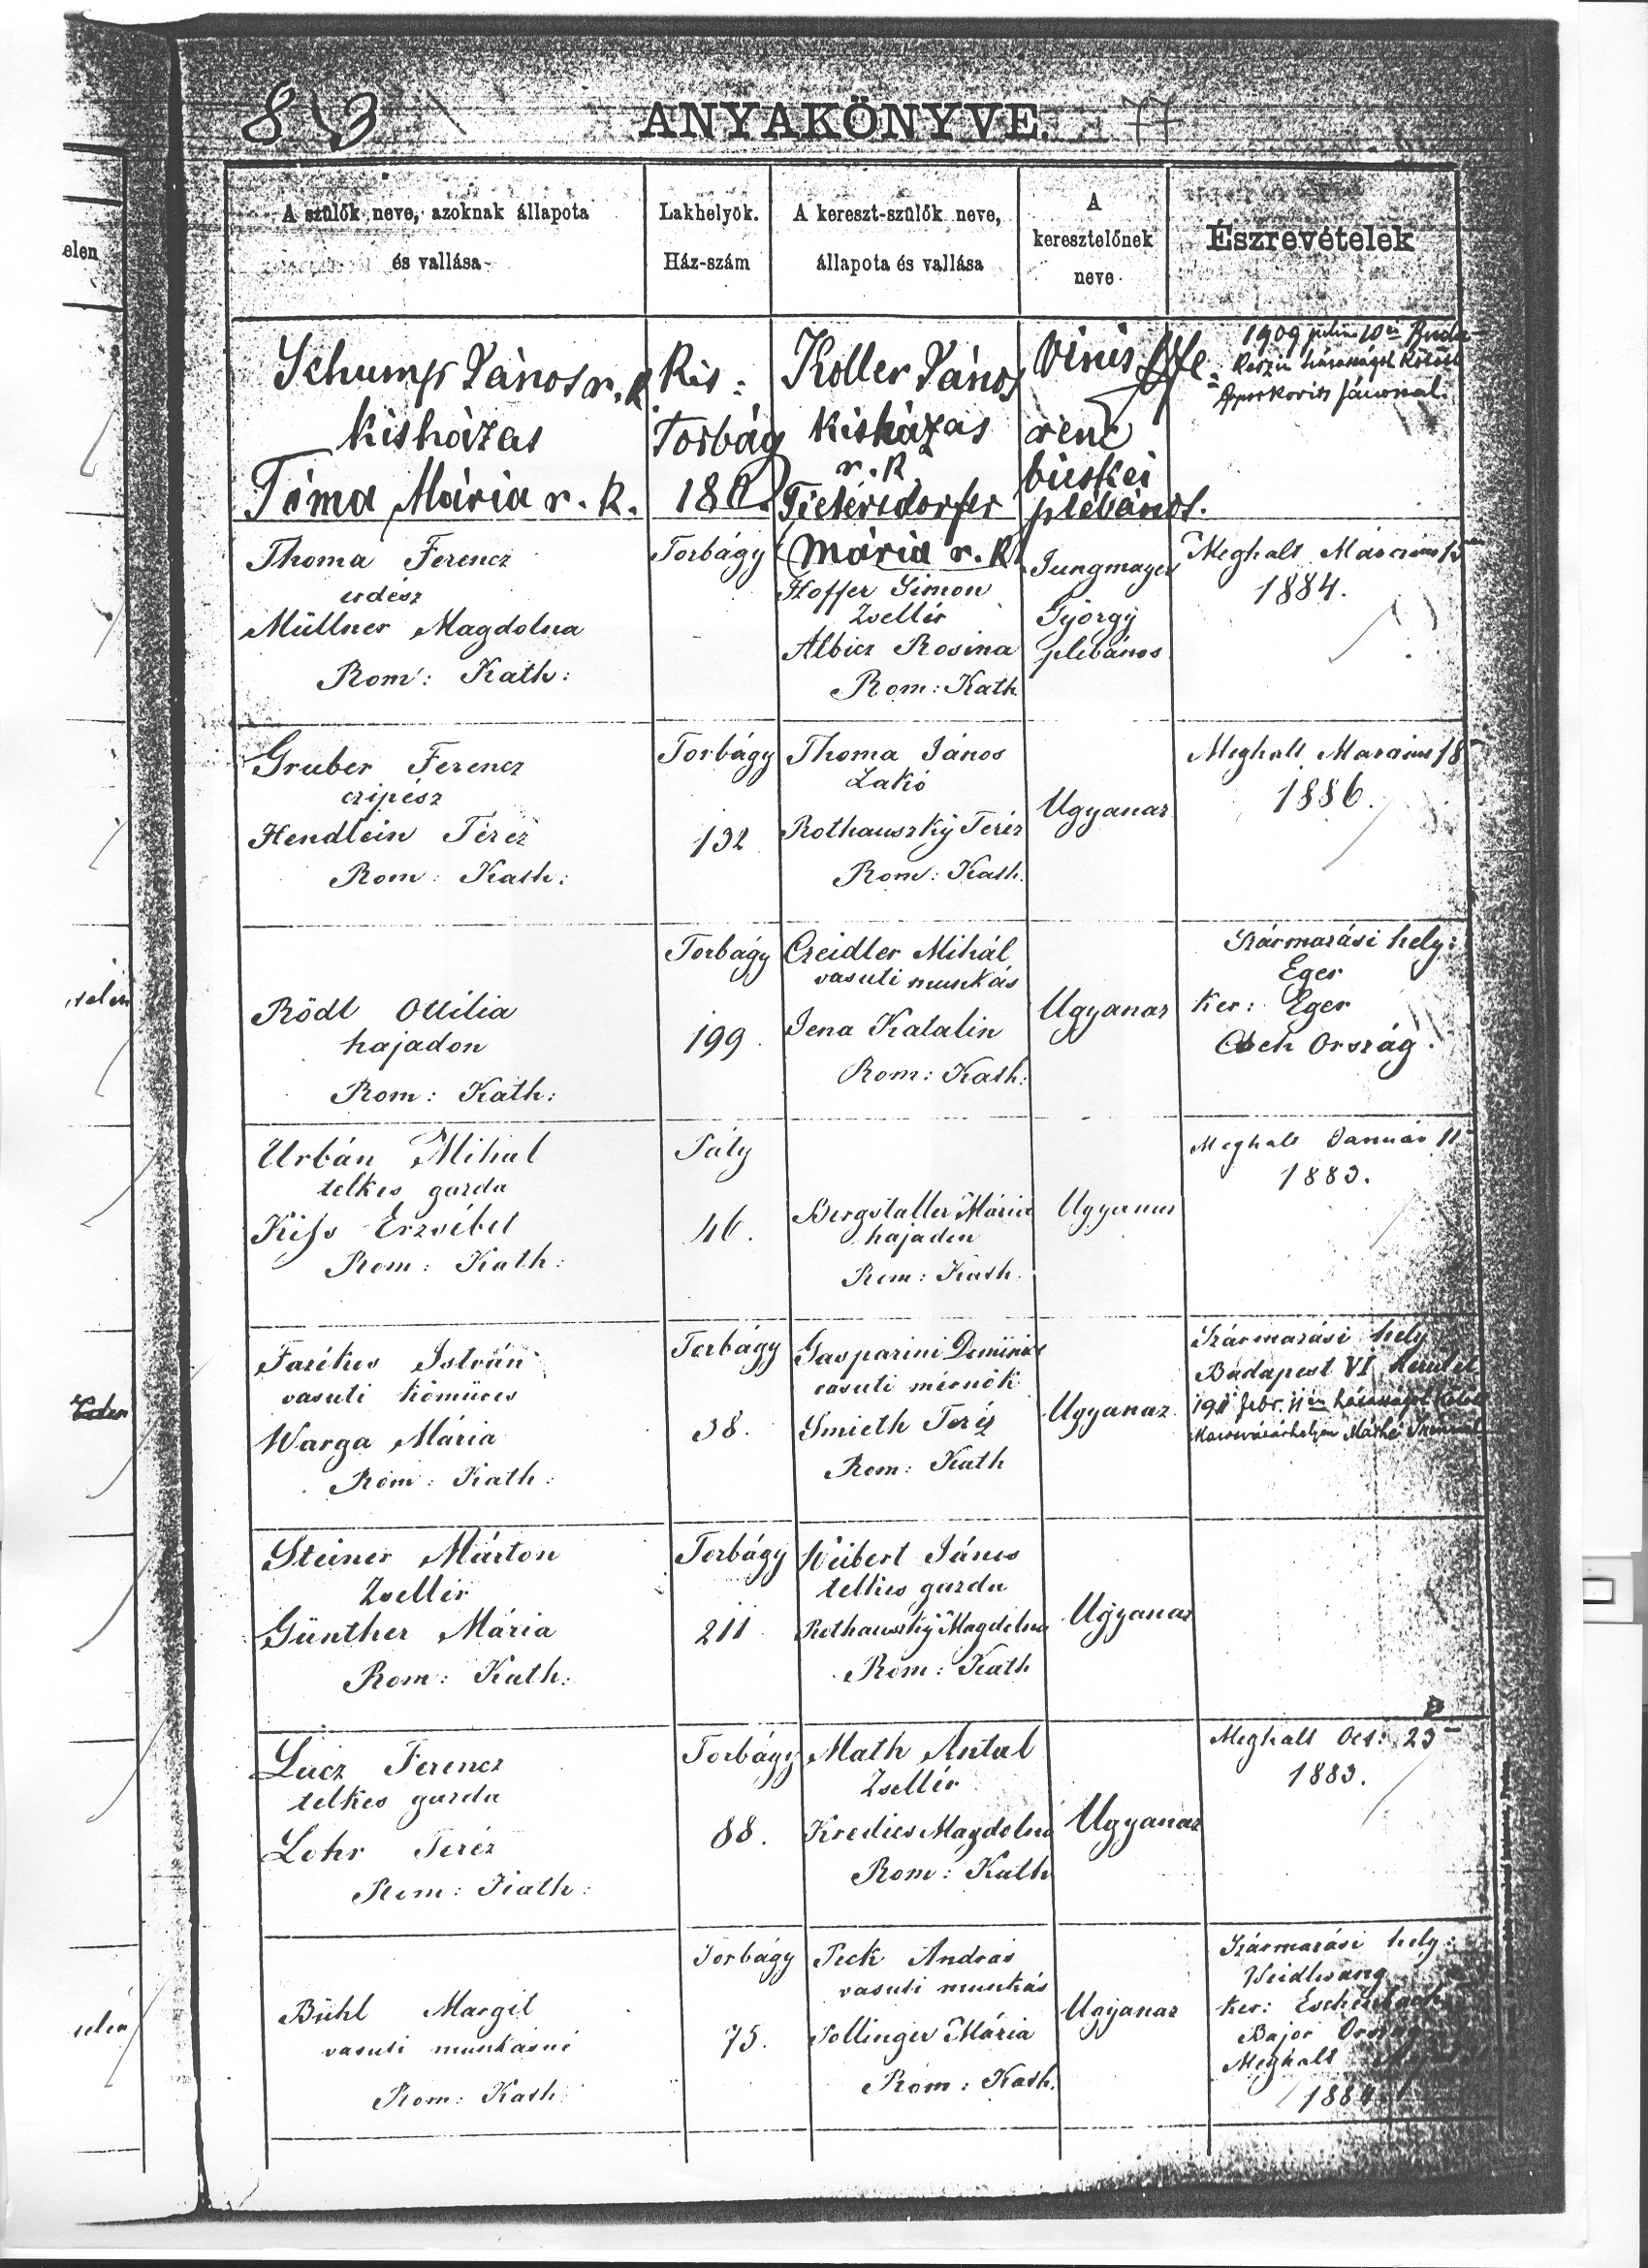 883
ANYAKÖNYVE. 77
A szülők neve, azoknak állapota
és vallása
Lakhelyök.
Ház-szám
A kereszt-szülők neve,
állapota és vallása
A
keresztelőnek
neve
Észrevételek
elen
Schumpf János r. k.
kisházas
Tóma Mária r. k.
Kis-
Torbágy
180
Koller János
kisházas
r. k.
Pietersdorfer
Mária r. k.
Vinis Fe-
renc
bicskei
plébános.
Thoma Ferencz
erdész
Müllner Magdolna
Rom: Kath:
Torbágy
Hoffer Simon
Zsellér
Albicz Rosina
Rom: Kath
Jungmayer
György
plébános
Meghalt Márczius 15
1884.
Gruber Ferencz
czipész
Hendlein Teréz
Rom: Kath:
Torbágy
132
Thoma János
Lakó
Rothauszky Teréz
Rom: Kath.
Ugyanaz
Meghalt Marczius 18
1886.
Rödl Ottilia
hajadon
Rom: Kath:
Torbágy
199.
Czeidler Mihál
vasuti munkás
Jena Katalin
Rom: Kath:
Ugyanaz
Származási hely:
Eger
Ker: Eger
Cseh Ország.
Urbán Mihal
telkes gazda
Kiss Erzsébet
Rom: Kath:
Páty
46.
Bergstaller Mária
hajadon
Rom: Kath.
Ugyanaz
Meghalt Január 11
1883.
Farékes István
vasuti kőmüves
Warga Mária
Rom: Kath:
Torbágy
38.
Gasparini Dominic
vasuti mérnök
Smieth Teréz
Rom: Kath
Ugyanaz
Származási hely
Budapest VI kerület
1911 febr. 11én házasságot kötött
Marosvásárhelyen Máthé
Steiner Márton
Zsellér
Günther Mária
Rom: Kath:
Torbágy
211.
Weibert János
telkes gazda
Rothauszky Magdolna
Rom: Kath
Ugyanaz
Lucz Ferencz
telkes gazda
Lohr Teréz
Rom: Kath:
Torbágy
88.
Math Antal
Zsellér
Kredics Magdolna
Rom: Kath
Ugyanaz
Meghalt Oct: 23
1883.
Bühl Margit
vasuti munkásné
Rom: Kath:
Torbágy
75.
Peck András
vasuti munkás
Pollinger Mária
Rom: Kath.
Ugyanaz
Származási hely:
Weidlwang
Ker: Eschenbach
Bajor Ország
Meghalt
1884